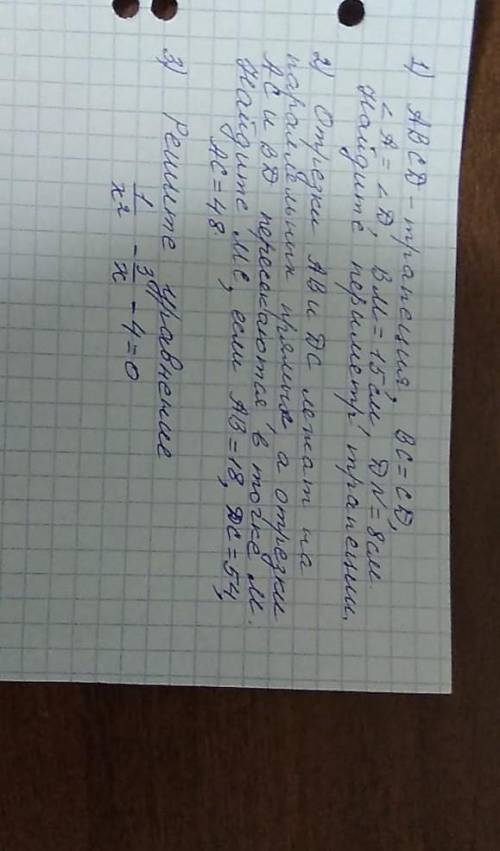 1) ABCD - трапеция, BC = CD,
∠A = ∠D, BM = 15 см DN = 8 см.
Найдите периметр трапеции.
2) Отрезки AB и DC лежат на
параллельных прямых, а отрезки
AC и BD пересекаются в точке M.
Найдите MC, если AB = 18, DC = 54,
AC = 48
3) Решите уравнение
1/x² - 3/x - 4 = 0